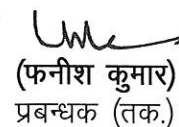 (फनीश कुमार)
प्रबन्धक (तक.)